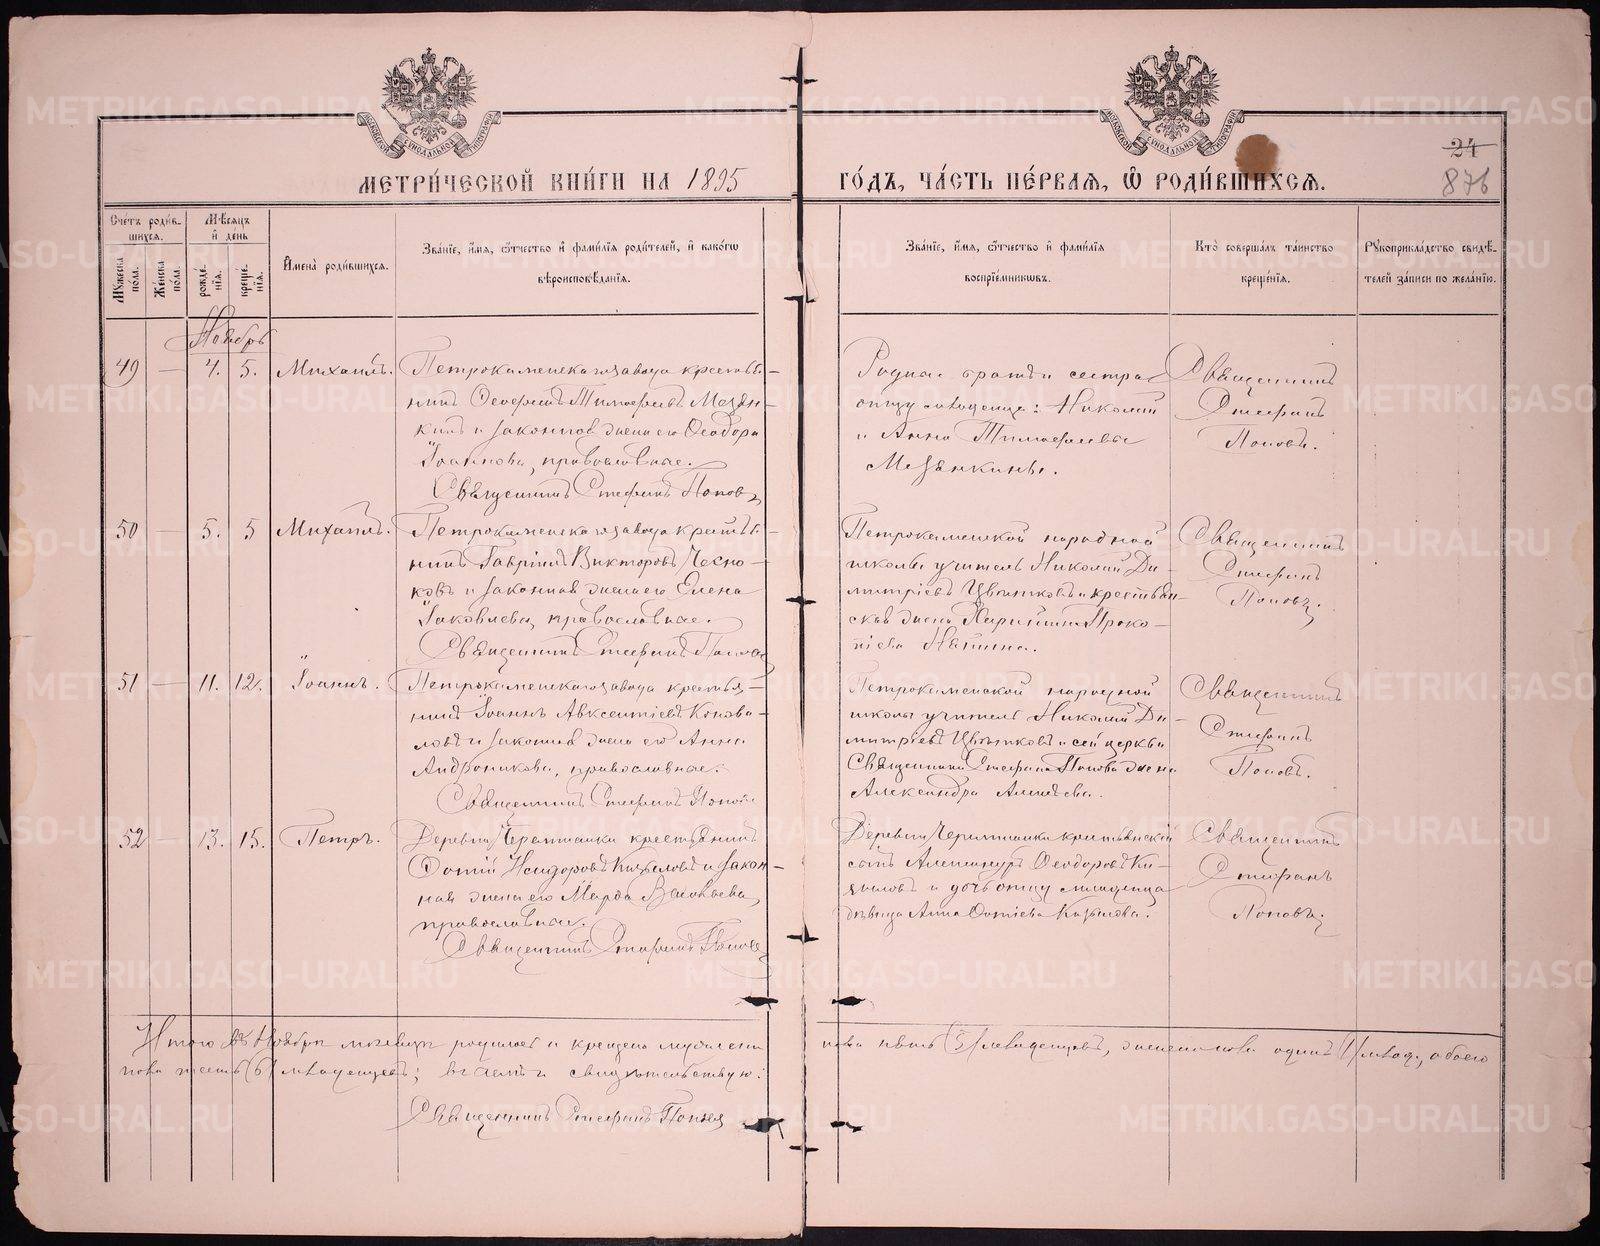 МЕТРИ́ЧЕСКОЙ КНИ́ГИ НА 1895
ГО́ДЪ, ЧА́СТЬ ПЕ́РВАЯ, Ѽ РОДИ́ВШИХСЯ.
24
876
Сче́тъ роди́в-
шихся.
Мѣ́сяцъ
и́ день
Му́жеска по́ла.
Же́нска по́ла.
рожде́-
нїя.
креще́-
нїя.
И҆мена̀ роди́вшихся.
Зва́нїе, и҆́мя, ѻ҆́тчество и҆ фами́лїя роди́телей, и҆ како́гѡ
вѣроисповѣ́данїя.
Зва́нїе, и҆́мя, ѻ҆́тчество и҆ фами́лїя
воспрїе́мникѡвъ.
Кто̀ соверша́лъ та́инство
креще́нїя.
Рꙋкоприкла́дство свидѣ́-
телей за́писи по жела́нїю.
Ноябрь
49 — 4. 5. Михаилъ.
Петрокаменскаго завода крестья-
нинъ Тимофеевъ Мезен-
кинъ и законная жена его Феодора
Іоаннова, православные.
Священникъ Стефанъ Поповъ
Родные братъ и сестра
отцу младенца: Николай
и Анна Тимофеевы
Мезенкины.
Священникъ
Стефанъ
Поповъ.
50 — 5. 5 Михаилъ.
Петрокаменскаго завода крестья-
нинъ Гавріилъ Викторовъ Чесно-
ковъ и законная жена его Елена
Іаковлева, православные.
Священникъ Стефанъ Поповъ
Петрокаменской народной
школы учитель Николай Ди-
митріевъ Цвѣтковъ и крестьян-
ская жена Проко-
піева
Священникъ
Стефанъ
Поповъ.
51 — 11. 12. Іоаннъ.
Петрокаменскаго завода крестья-
нинъ Іоаннъ Авксентіевъ Конова-
ловъ и законная жена его Анна
Андроникова, православные.
Священникъ Стефанъ Поповъ
Петрокаменской народной
школы учитель Николай Ди-
митріевъ Цвѣтковъ и сей церкви
Священника Стефана Попова жена
Александра Алексѣева.
Священникъ
Стефанъ
Поповъ.
52 — 13. 15. Петръ.
Деревни Черемшанки крестьянинъ
Фотій Исидоровъ Кизиловъ и закон-
ная жена его Марѳа Васильева,
православные.
Священникъ Стефанъ Поповъ
Деревни Черемшанки крестьянскій
сынъ Александръ Феодоровъ Ки-
зиловъ и дочь отцу младенца
дѣвица Анна Фотіева Кизилова.
Священникъ
Стефанъ
Поповъ.
Итого въ Ноябрѣ мѣсяцѣ родилось и крещено мужескаго
пола пять (5) младенцевъ, женскаго пола одинъ (1) млад., обоего
пола шесть (6) младенцевъ; въ чемъ и свидѣтельствую:
Священникъ Стефанъ Поповъ